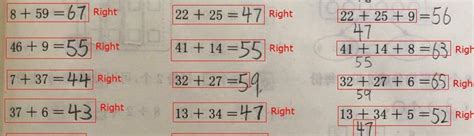 8 + 59 = 67 Right 22 + 25 = 47 Right 22 + 25 + 9 = 56
47
46 + 9 = 55 Right 41 + 14 = 55 Right 41 + 14 + 8 = 63 Right
55
7 + 37 = 44 Right 32 + 27 = 59 32 + 27 + 6 = 65 Right
59
37 + 6 = 43 Right 13 + 34 = 47 Right 13 + 34 + 5 = 52 Right
47